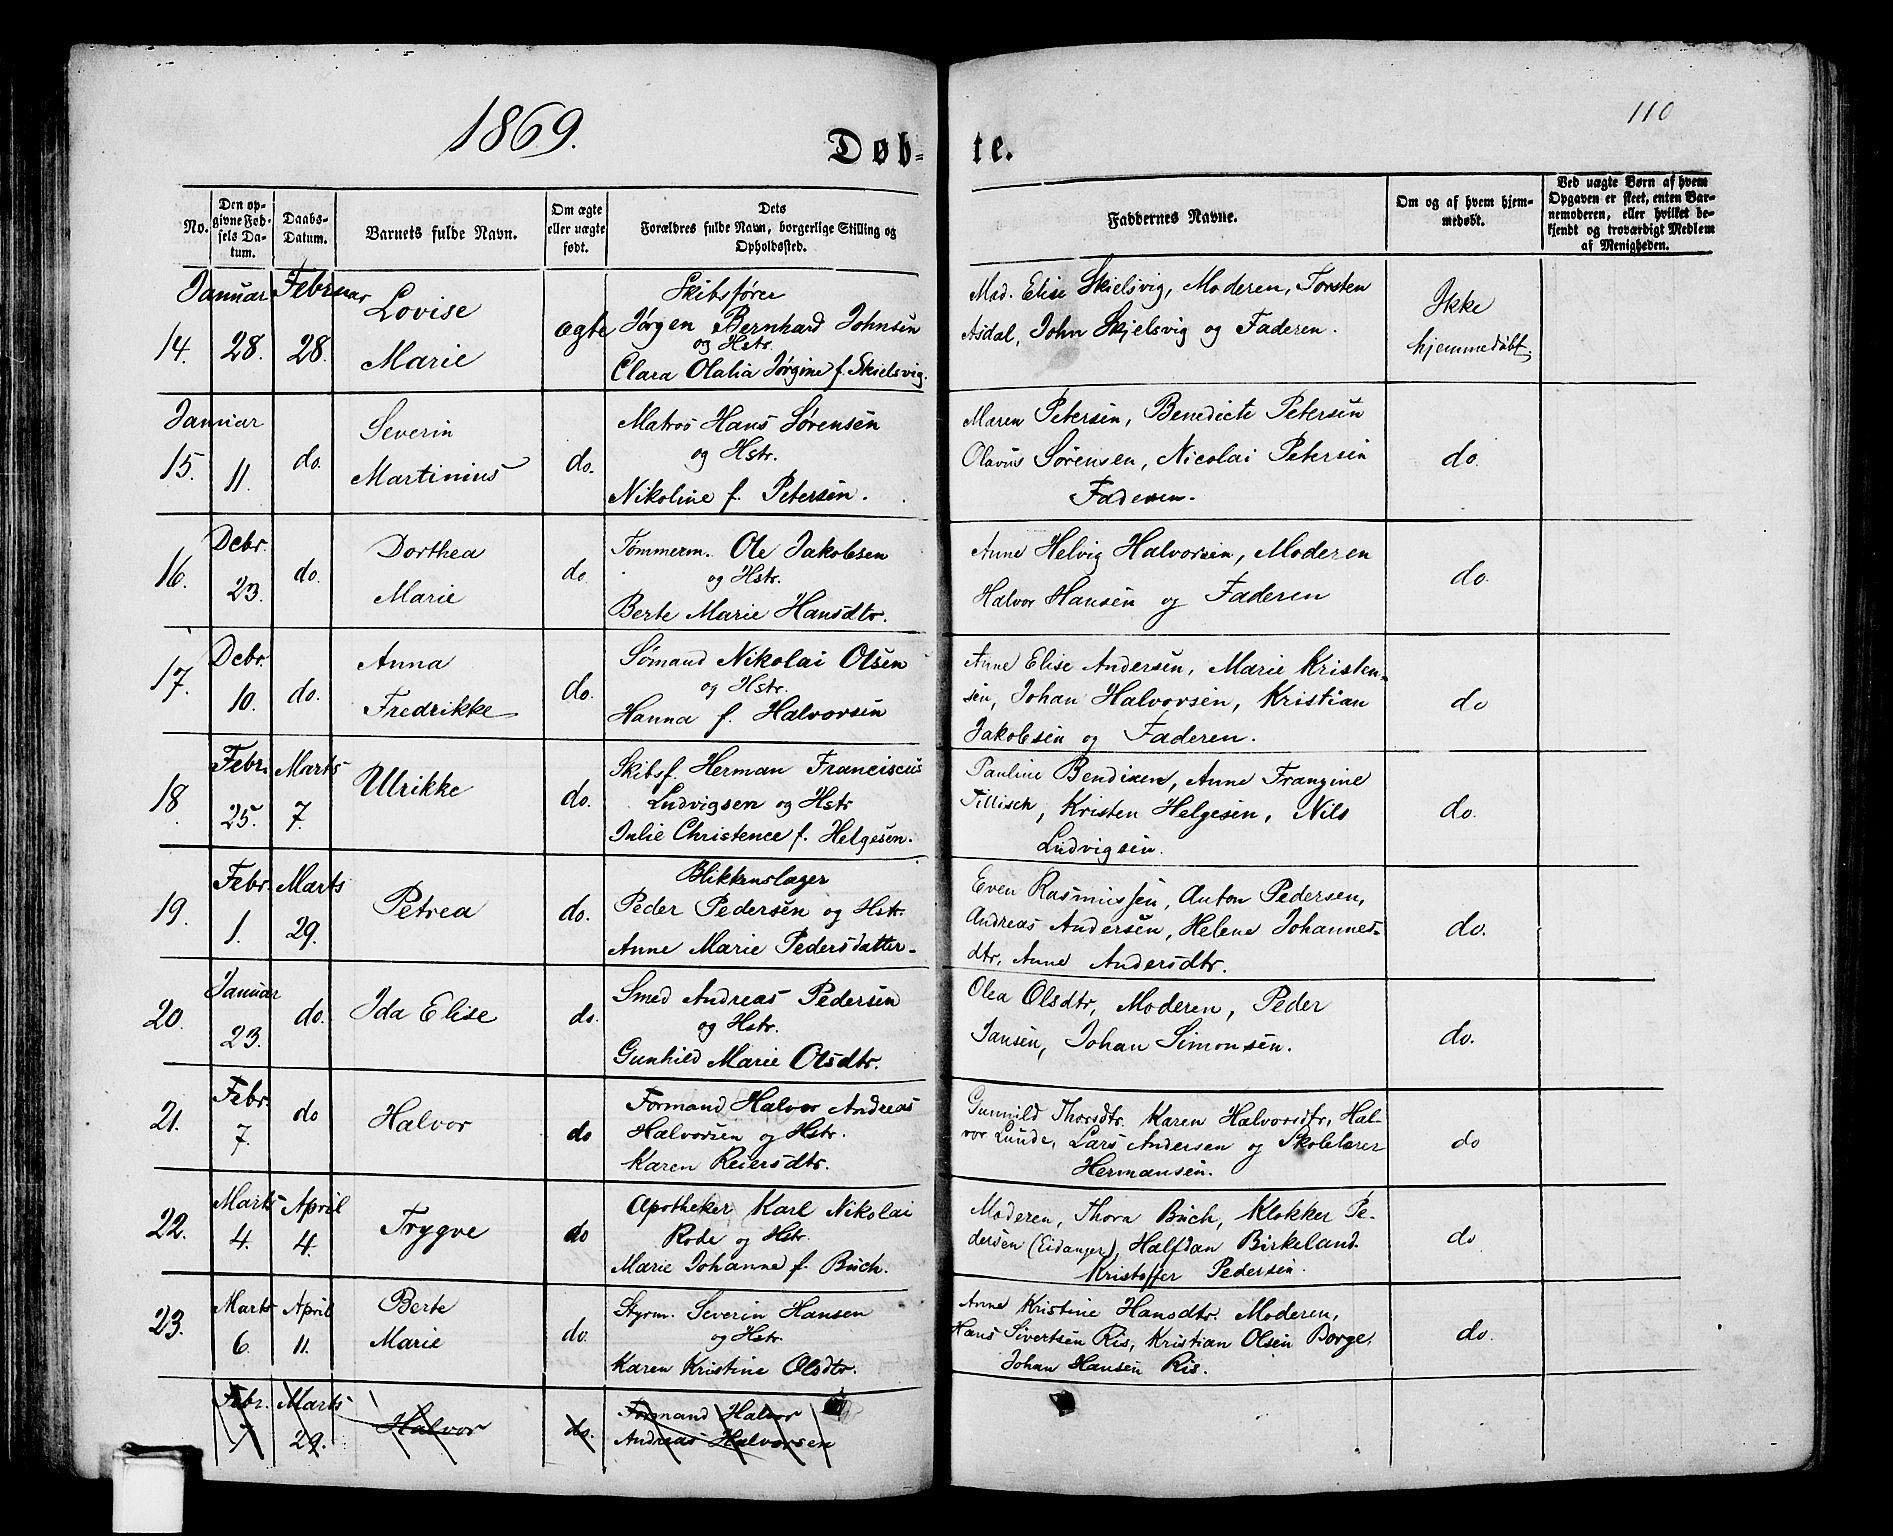 1869.
110
Døb-
te.
No.
Den op-
givne Fød-
sels Da-
tum.
Daabs-
Datum.
Barnets fulde Navn.
Om ægte
eller uægte
født.
Dets
Forældres fulde Navn, borgerlige Stilling og
Opholdssted.
Faddernes Navne.
Om og af hvem hjem-
medøbt.
Ved uægte Børn af hvem
Opgaven er skeet, enten Bar-
nemoderen, eller hvilket be-
kjendt og troværdigt Medlem
af Menigheden.
Januar Februar
14. 28. 28.
Lovise
Marie
ægte
Skibsfører
Jørgen Bernhard Johnsen
og Hstr.
Clara Olalia Jørgine f. Skielsvig.
Mad. Elise Skielsvig, Moderen, Torsten
Asdal, John Skjelsvig og Faderen.
Ikke
hjemmedøbt.
Januar
15. 11. do.
Severin
Martinius
do.
Matros Hans Sørensen
og Hstr.
Nikoline f. Petersen.
Maren Petersen, Benedicte Petersen
Olavus Sørensen, Nicolai Petersen
Faderen.
do.
Debr.
16. 23. do.
Dorthea
Marie
do.
Tømmerm. Ole Jakobsen
og Hstr.
Berte Marie Hansdtr.
Anne Helvig Halvorsen, Moderen
Halvor Hansen og Faderen
do.
Debr.
17. 10. do.
Anna
Fredrikke
do.
Sømand Nikolai Olsen
og Hstr.
Hanna f. Halvorsen
Anne Elise Andersen, Marie Kristen-
sen, Johan Halvorsen, Kristian
Jakobsen og Faderen.
do
Febr. Marts
18. 25. 7.
Ulrikke
do.
Skibsf. Herman Franciscus
Ludvigsen og Hstr
Julie Christence f. Helgesen.
Pauline Bendixen, Anne Frangine
Tillisch, Kristen Helgesen, Nils
Ludvigsen.
do.
Febr. Marts
19. 1. 29.
Petrea
do.
Blikkenslager
Peder Pedersen og Hstr.
Anne Marie Pedersdatter.
Even Rasmussen, Anton Pedersen,
Andreas Andersen, Helene Johannes-
dtr. Anne Andersdtr.
do.
Januar
20. 23. do.
Ida Elise
do.
Smed Andreas Pedersen
og Hstr.
Gunhild Marie Olsdtr.
Olea Olsdtr, Moderen, Peder
Jansen, Johan Simonsen.
do.
Febr.
21. 7. do
Halvor
do
Formand Halvor Andreas
Halvorsen og Hstr.
Karen Reiersdtr.
Gunnild Thorsdtr. Karen Halvorsdtr, Hal-
vor Lunde, Lars Andersen og Skolelærer
Hermansen.
do
Marts April
22. 4. 4.
Trygve
do
Apotheker Karl Nikolai
Rode og Hstr.
Marie Johanne f. Buch.
Moderen, Thora Buch, Klokker Pe-
dersen (Eidanger), Halfdan Birkeland.
Kristoffer Pedersen.
do
Marts April
23. 6. 11.
Berte
Marie
do.
Styrm. Severin Hansen
og Hstr.
Karen Kristine Olsdtr.
Anne Kristine Hansdtr. Moderen,
Hans Sivertsen Ris, Kristian Olsen Borge.
Johan Hansen Ris.
do.
Febr. Marts
7 29.
Halvor
do.
Formand Halvor
Andreas Halvorsen